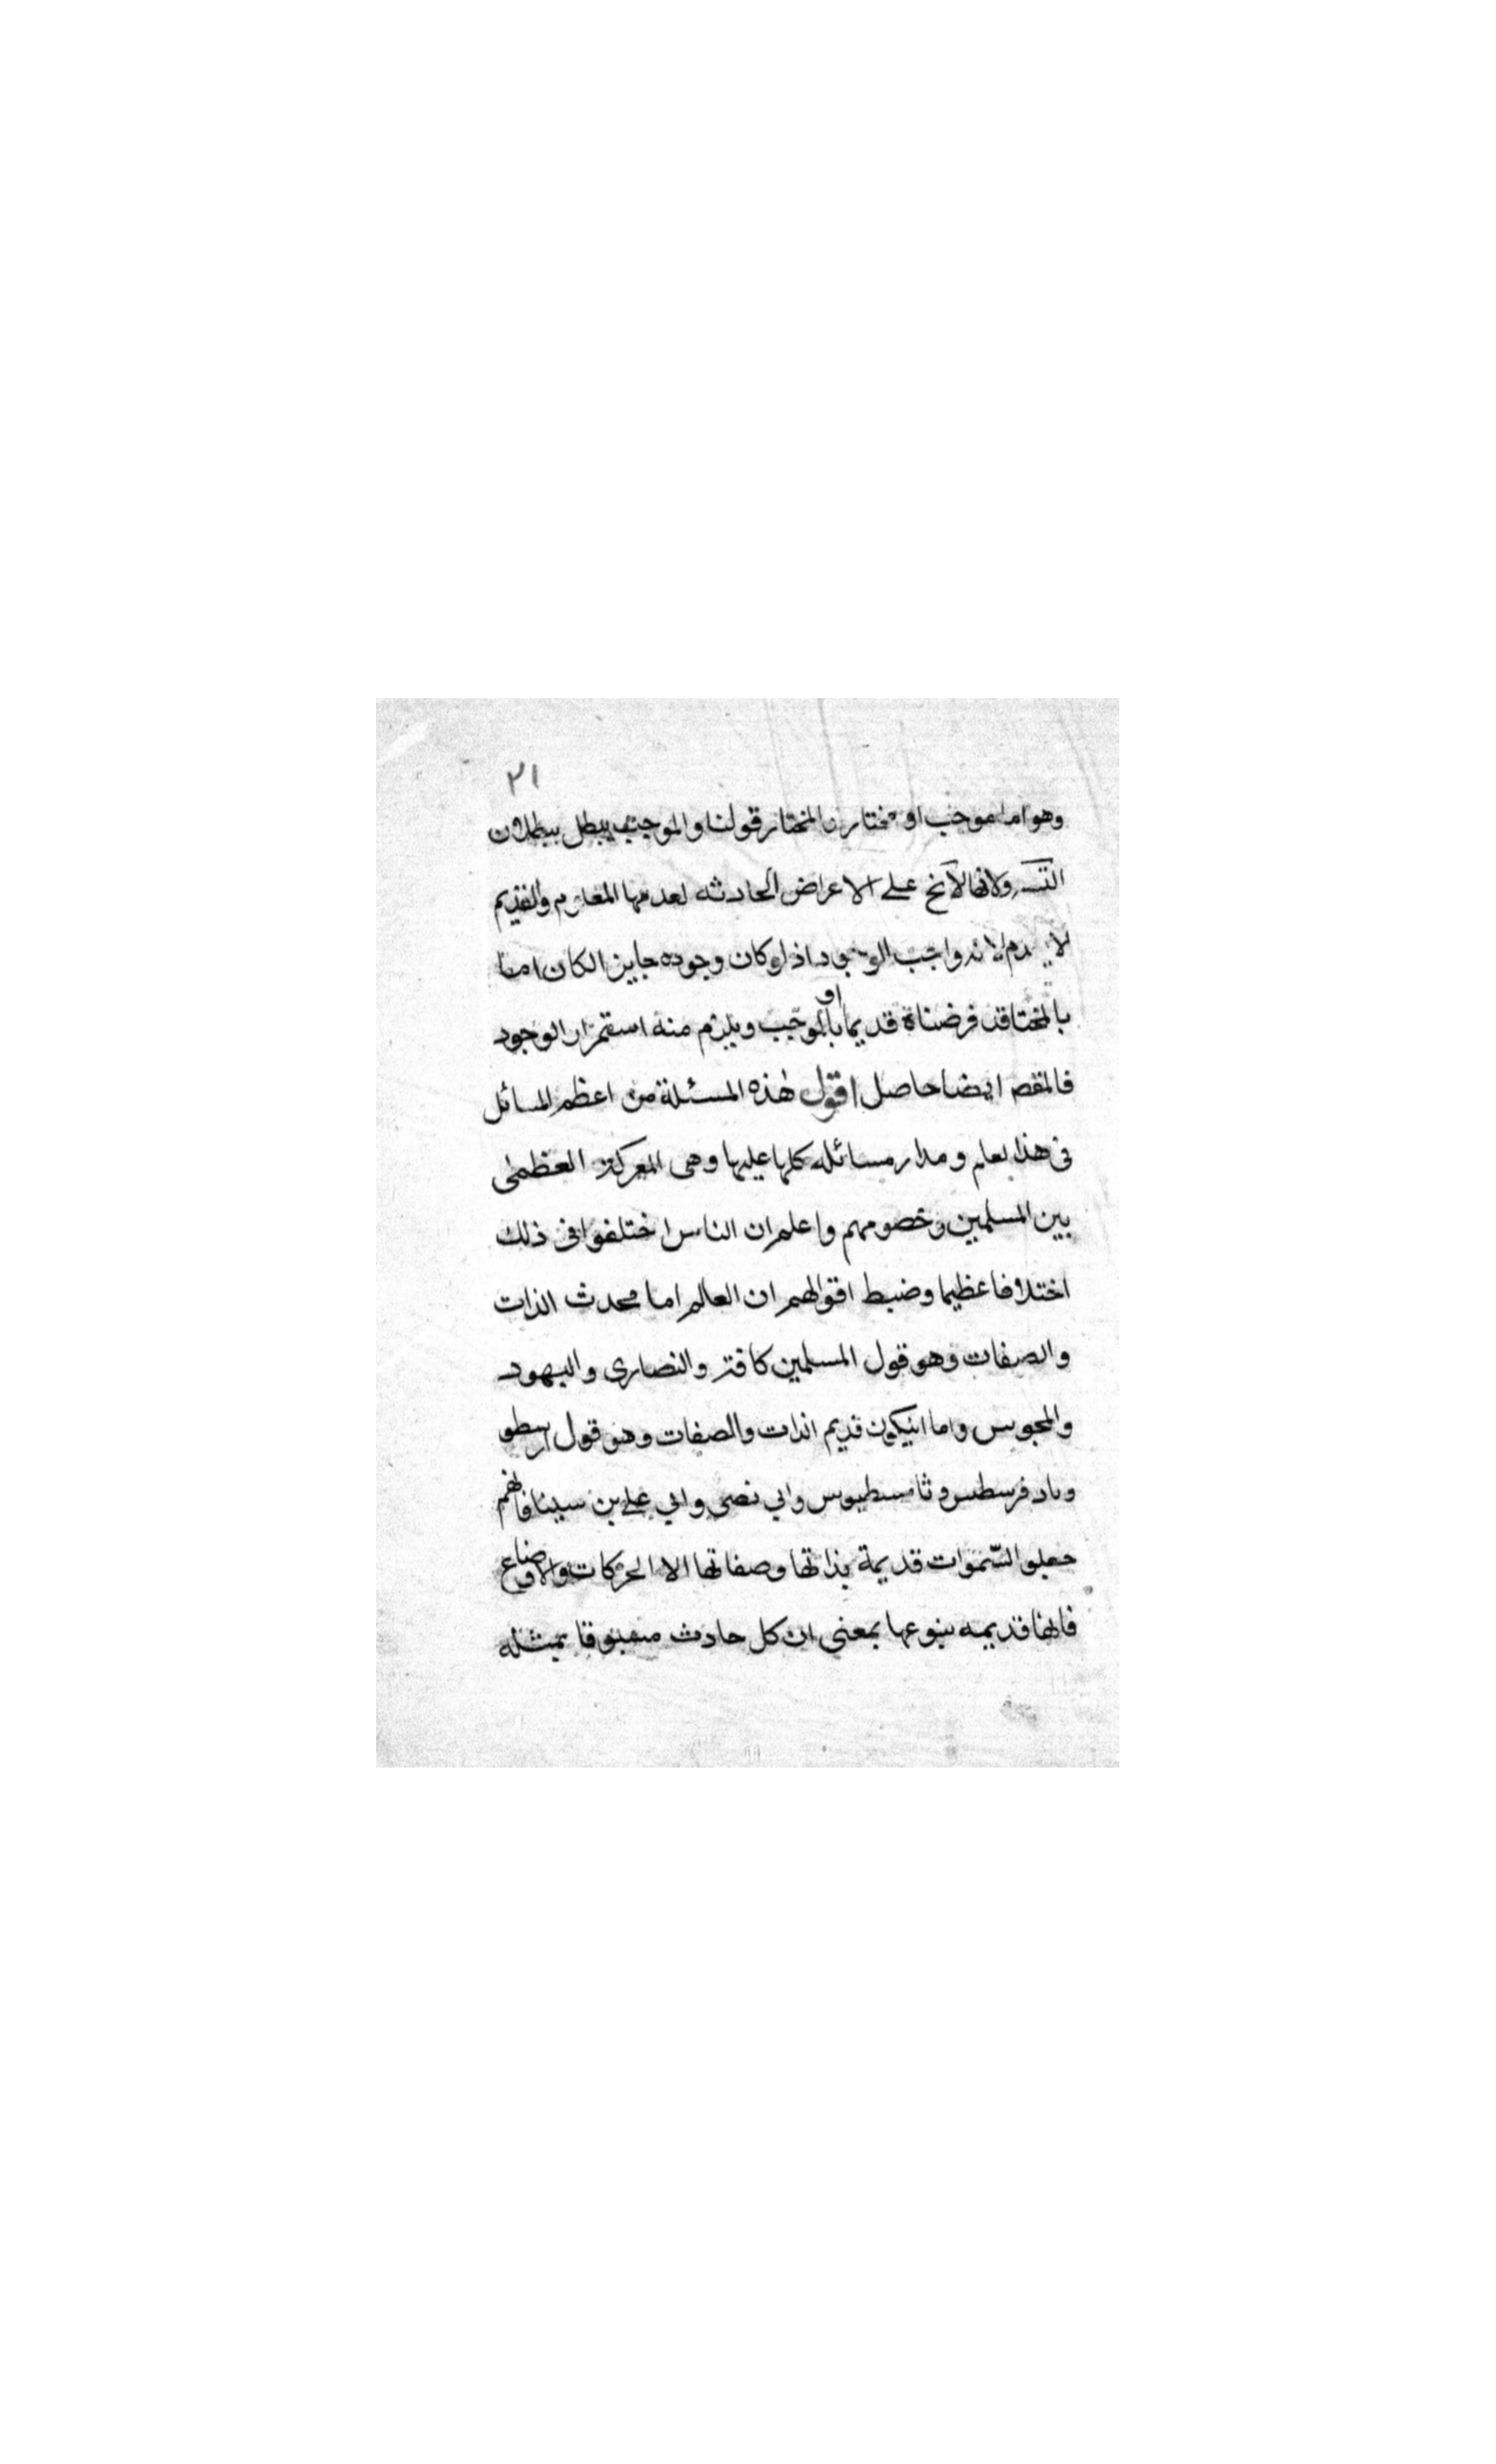 ٢١
وهو اما موجب او مختار فالمختار قولنا والموجب يبطل ببطلان
التسـ ولانها لا تخ على الاعراض الحادثه لعدمها المعلوم والقديم
لا يعدم لانه واجب الوجود اذ لو كان وجوده جايز الكان اما
بالمختا قد فرضناة قديما او بالموجب ويلزم منه استمرار الوجود
فالمقصـ ايضا حاصل اقول هذه المسئلة من اعظم المسائل
فى هذا لعلم ومدار مسائله كلها عليها وهى المعركة العظمى
بين المسلمين وخصومهم واعلم ان الناس اختلفوا فى ذلك
اختلافا عظيما وضبط اقوالهم ان العالم اما محدث الذات
والصفات وهو قول المسلمين كافة والنصارى واليهود
والمجوس واما انيكون قديم الذات والصفات وهو قول ارسطو
وثامسطيوس وابي نصر وابي على بن سينا فانهم
جعلوا السّموات قديمة بذاتها وصفاتها الا الحركات والاوضاع
فانها قديمه بنوعها بمعنى ان كل حادث مسبوقا بمثله